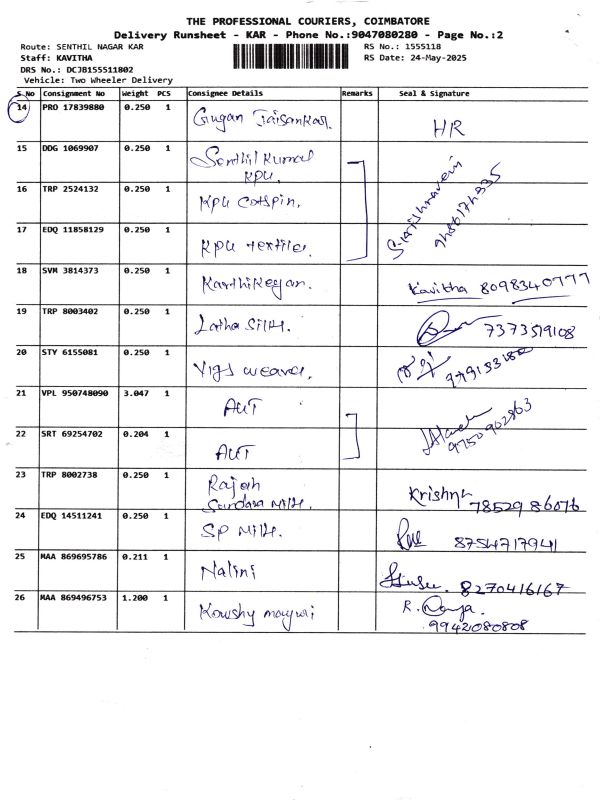 THE PROFESSIONAL COURIERS, COIMBATORE
Delivery Runsheet - KAR - Phone No.:9047080280 - Page No.:2
Route: SENTHIL NAGAR KAR
RS No.: 1555118
Staff: KAVITHA
RS Date: 24-May-2025
DRS No.: DCJB155511802
Vehicle: Two Wheeler Delivery
S No Consignment No Weight PCS Consignee Details Remarks Seal & Signature
14 PRO 17839880 0.250 1 Gugan Jaisankar. HR
15 DDG 1069907 0.250 1 Senthil Kumal
KPU.
16 TRP 2524132 0.250 1 KPU Cotspin.
17 EDQ 11858129 0.250 1 KPU textile.
18 SVM 3814373 0.250 1 Karthikeyan. Kavitha 8098340777
19 TRP 8003402 0.250 1 Latha Silk. 7373519108
20 STY 6155081 0.250 1 Vigs weaver.
21 VPL 950748090 3.047 1 AUT
9750902863
22 SRT 69254702 0.204 1 AUT
23 TRP 8002738 0.250 1 Rajah Krishna
78529 86076
24 EDQ 14511241 0.250 1 SP Mill. 8754717941
25 MAA 869695786 0.211 1 Nalini 8270416167
26 MAA 869496753 1.200 1 Kowshy R.
9942080808